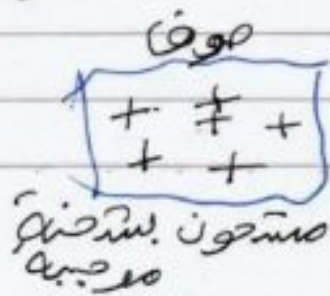 صوف
+ + + + + +
مشحون بشحنة
موجبة